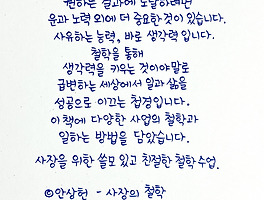 원하는 결과에 도달하려면
운과 노력 외에 더 중요한 것이 있습니다.
사유하는 능력, 바로 생각력 입니다.
철학을 통해
생각력을 키우는 것이야말로
급변하는 세상에서 일과 삶을
성공으로 이끄는 첩경입니다.
이 책에 다양한 사업의 철학과
일하는 방법을 담았습니다.
사장을 위한 쓸모 있고 친절한 철학 수업.
©안상헌 - 사장의 철학